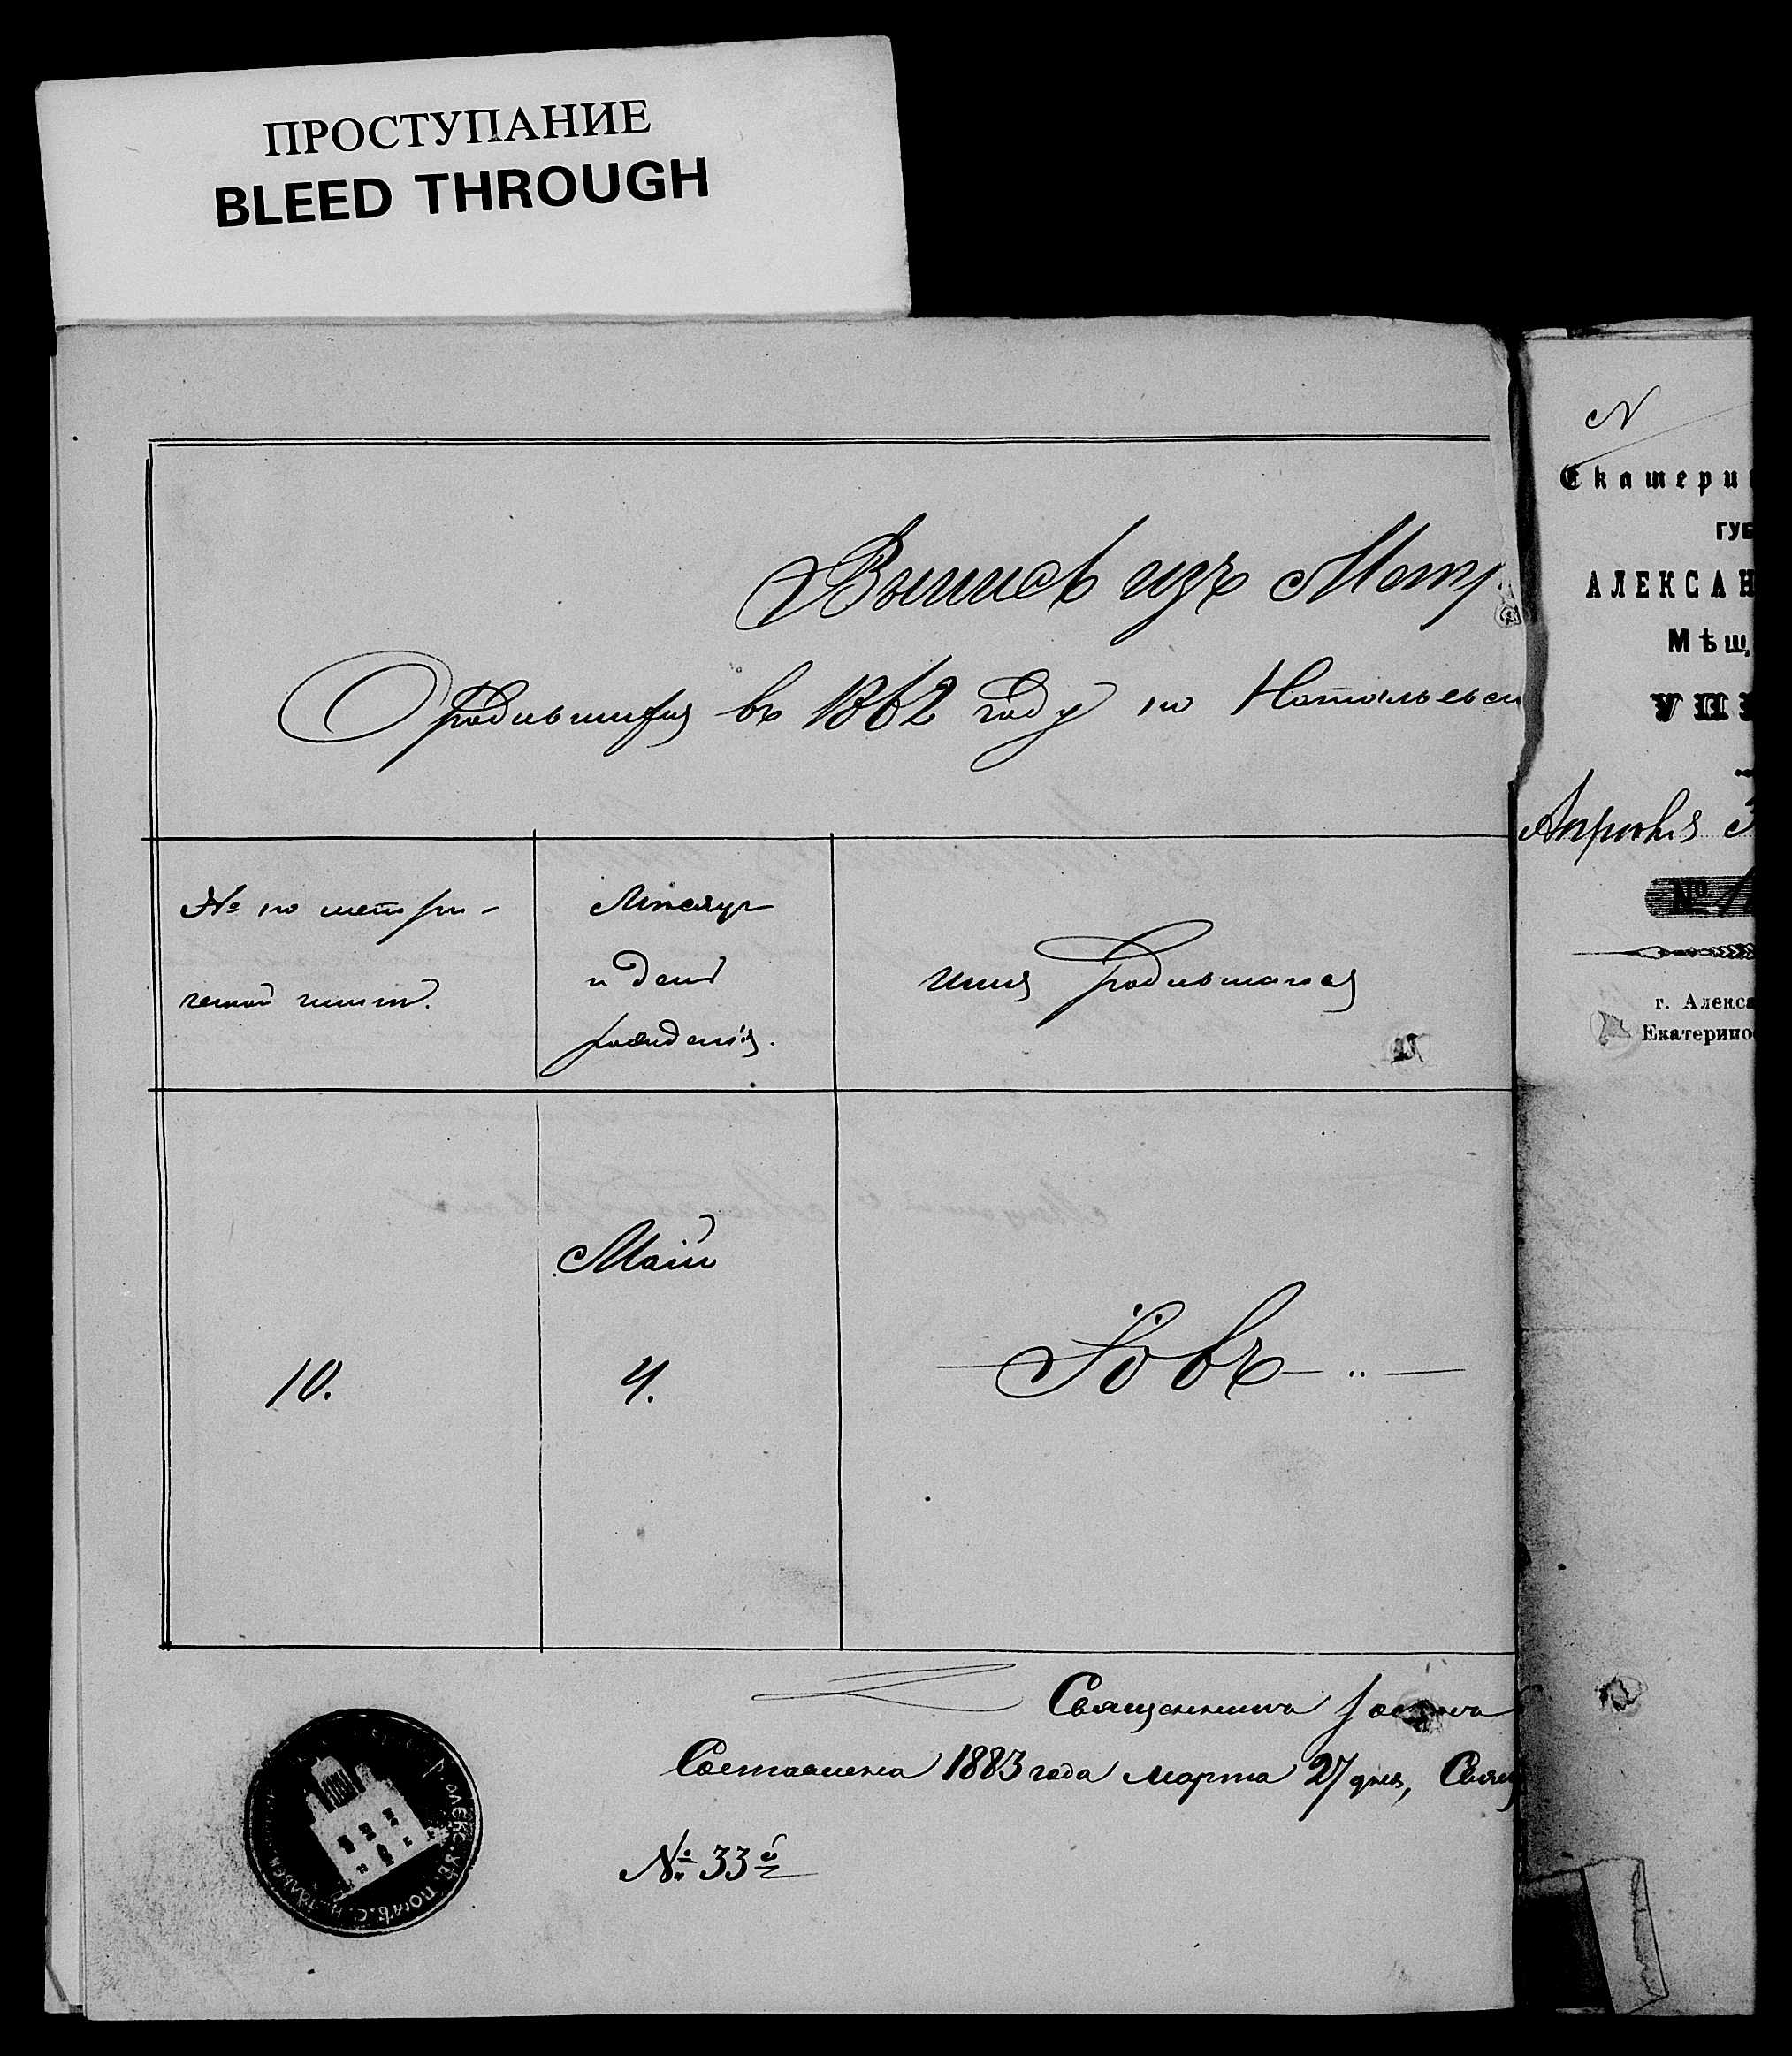 ПРОСТУПАНИЕ
BLEED THROUGH
Выпись изъ Метр
О родившихся въ 1862 году по Натальевск
№ по метри-
ческой книги.
Мѣсяцъ
и день
рожденія.
имя родившагося
10.
Маій
4.
Іовъ
Священника Іос
Составлена 1883 года марта 27 дня, Свящ
№ 33й
N
Екатерин
ГУБ
АЛЕКСАН
Мѣщ
УПР
Апрѣля 3
№ 1
г. Алекса
Екатерино